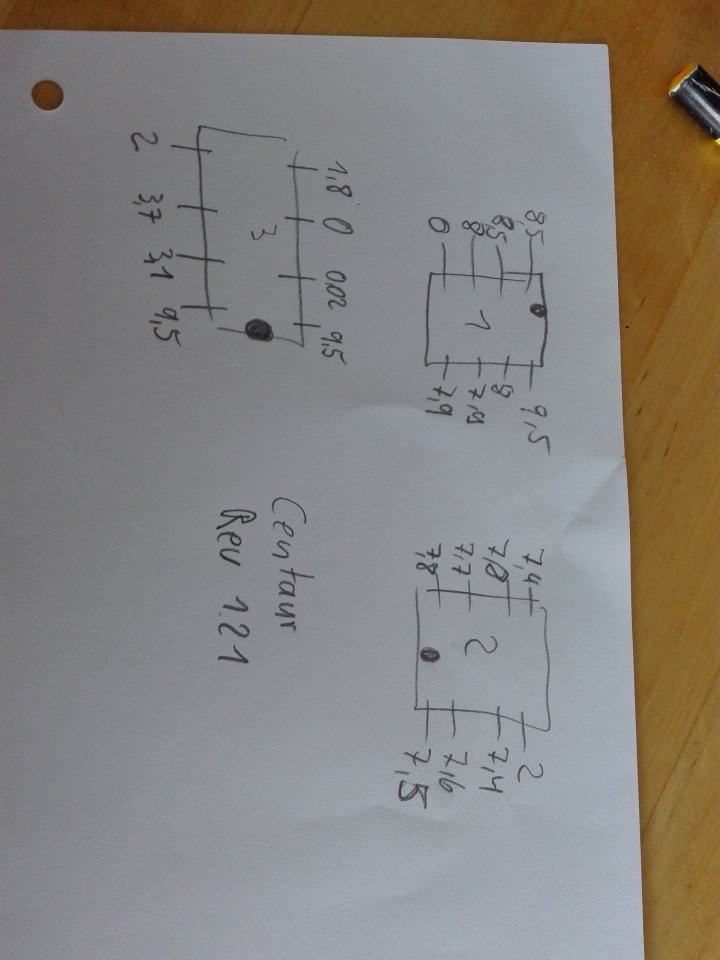 8,5 9,5
8,5
8 7,9
0 7,9
1
7,4 2
7,8 7,4
7,7 7,6
7,8 7,5
2
1,8 0 0,02 9,5
3
2 3,7 3,1 9,5
Centaur
Rev 1.21